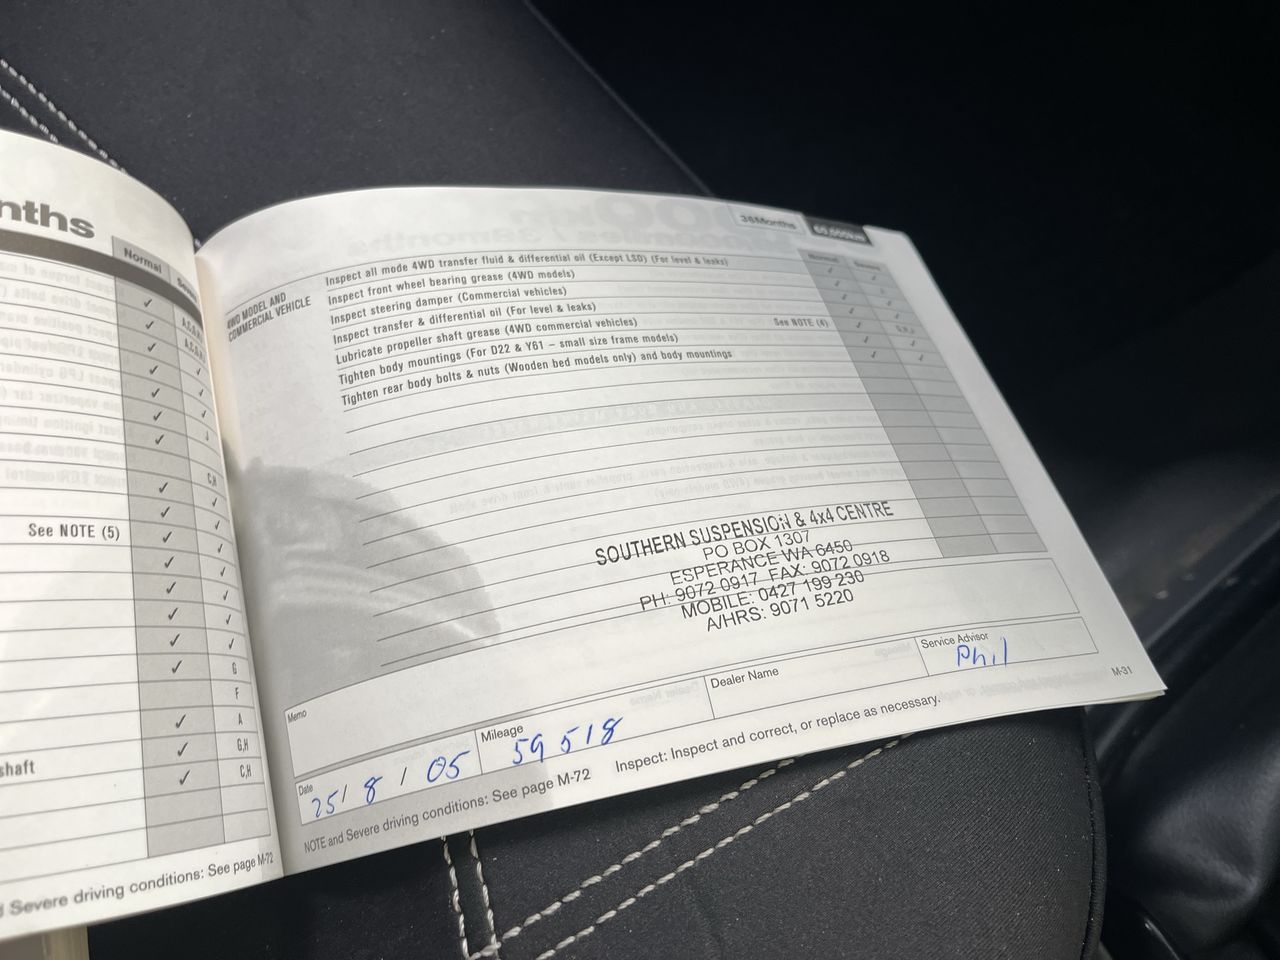 nths
Normal
A,C,G,H
A,C,G,H
C,H
See NOTE (5)
G
F
A
G,H
shaft
C,H
Severe driving conditions: See page M-72
36Months
60,000km
4WD MODEL AND
COMMERCIAL VEHICLE
Normal
Severe
Inspect all mode 4WD transfer fluid & differential oil (Except LSD) (For level & leaks)
Inspect front wheel bearing grease (4WD models)
Inspect steering damper (Commercial vehicles)
Inspect transfer & differential oil (For level & leaks)
Lubricate propeller shaft grease (4WD commercial vehicles) See NOTE (4)
Tighten body mountings (For D22 & Y61 – small size frame models)
Tighten rear body bolts & nuts (Wooden bed models only) and body mountings
SOUTHERN SUSPENSION & 4x4 CENTRE
PO BOX 1307
ESPERANCE WA 6450
PH: 9072 0917 FAX: 9072 0918
MOBILE: 0427 199 230
A/HRS: 9071 5220
Memo
Date 25/ 8 / 05
Mileage 59 518
Dealer Name
Service Advisor Phil
NOTE and Severe driving conditions: See page M-72 Inspect: Inspect and correct, or replace as necessary.
M-31